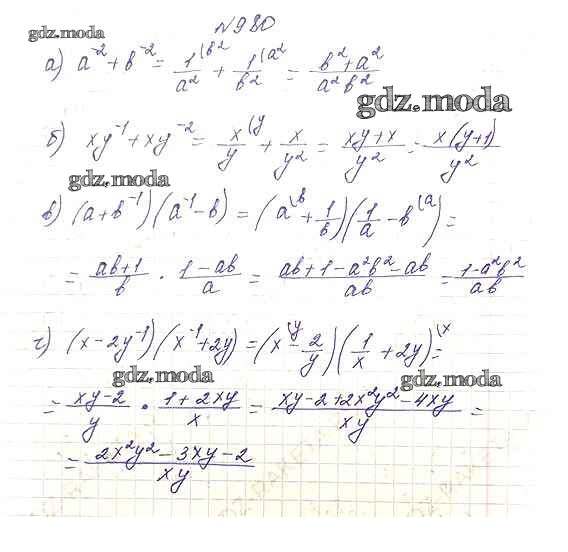 №980
gdz.moda
а) a⁻² + b⁻² = 1/a² (b² + 1/b² (a² = (b² + a²)/(a²b²)
gdz.moda
б) xy⁻¹ + xy⁻² = x/y (y + x/y² = (xy + x)/y² = x(y+1)/y²
gdz.moda
в) (a + b⁻¹)(a⁻¹ - b) = (a (b + 1/b)(1/a - b (a) =
= (ab + 1)/b · (1 - ab)/a = (ab + 1 - a²b² - ab)/(ab) = (1 - a²b²)/(ab)
г) (x - 2y⁻¹)(x⁻¹ + 2y) = (x (y - 2/y)(1/x + 2y) (x =
gdz.moda
gdz.moda
= (xy - 2)/y · (1 + 2xy)/x = (xy - 2 + 2x²y² - 4xy)/(xy) =
= (2x²y² - 3xy - 2)/(xy)